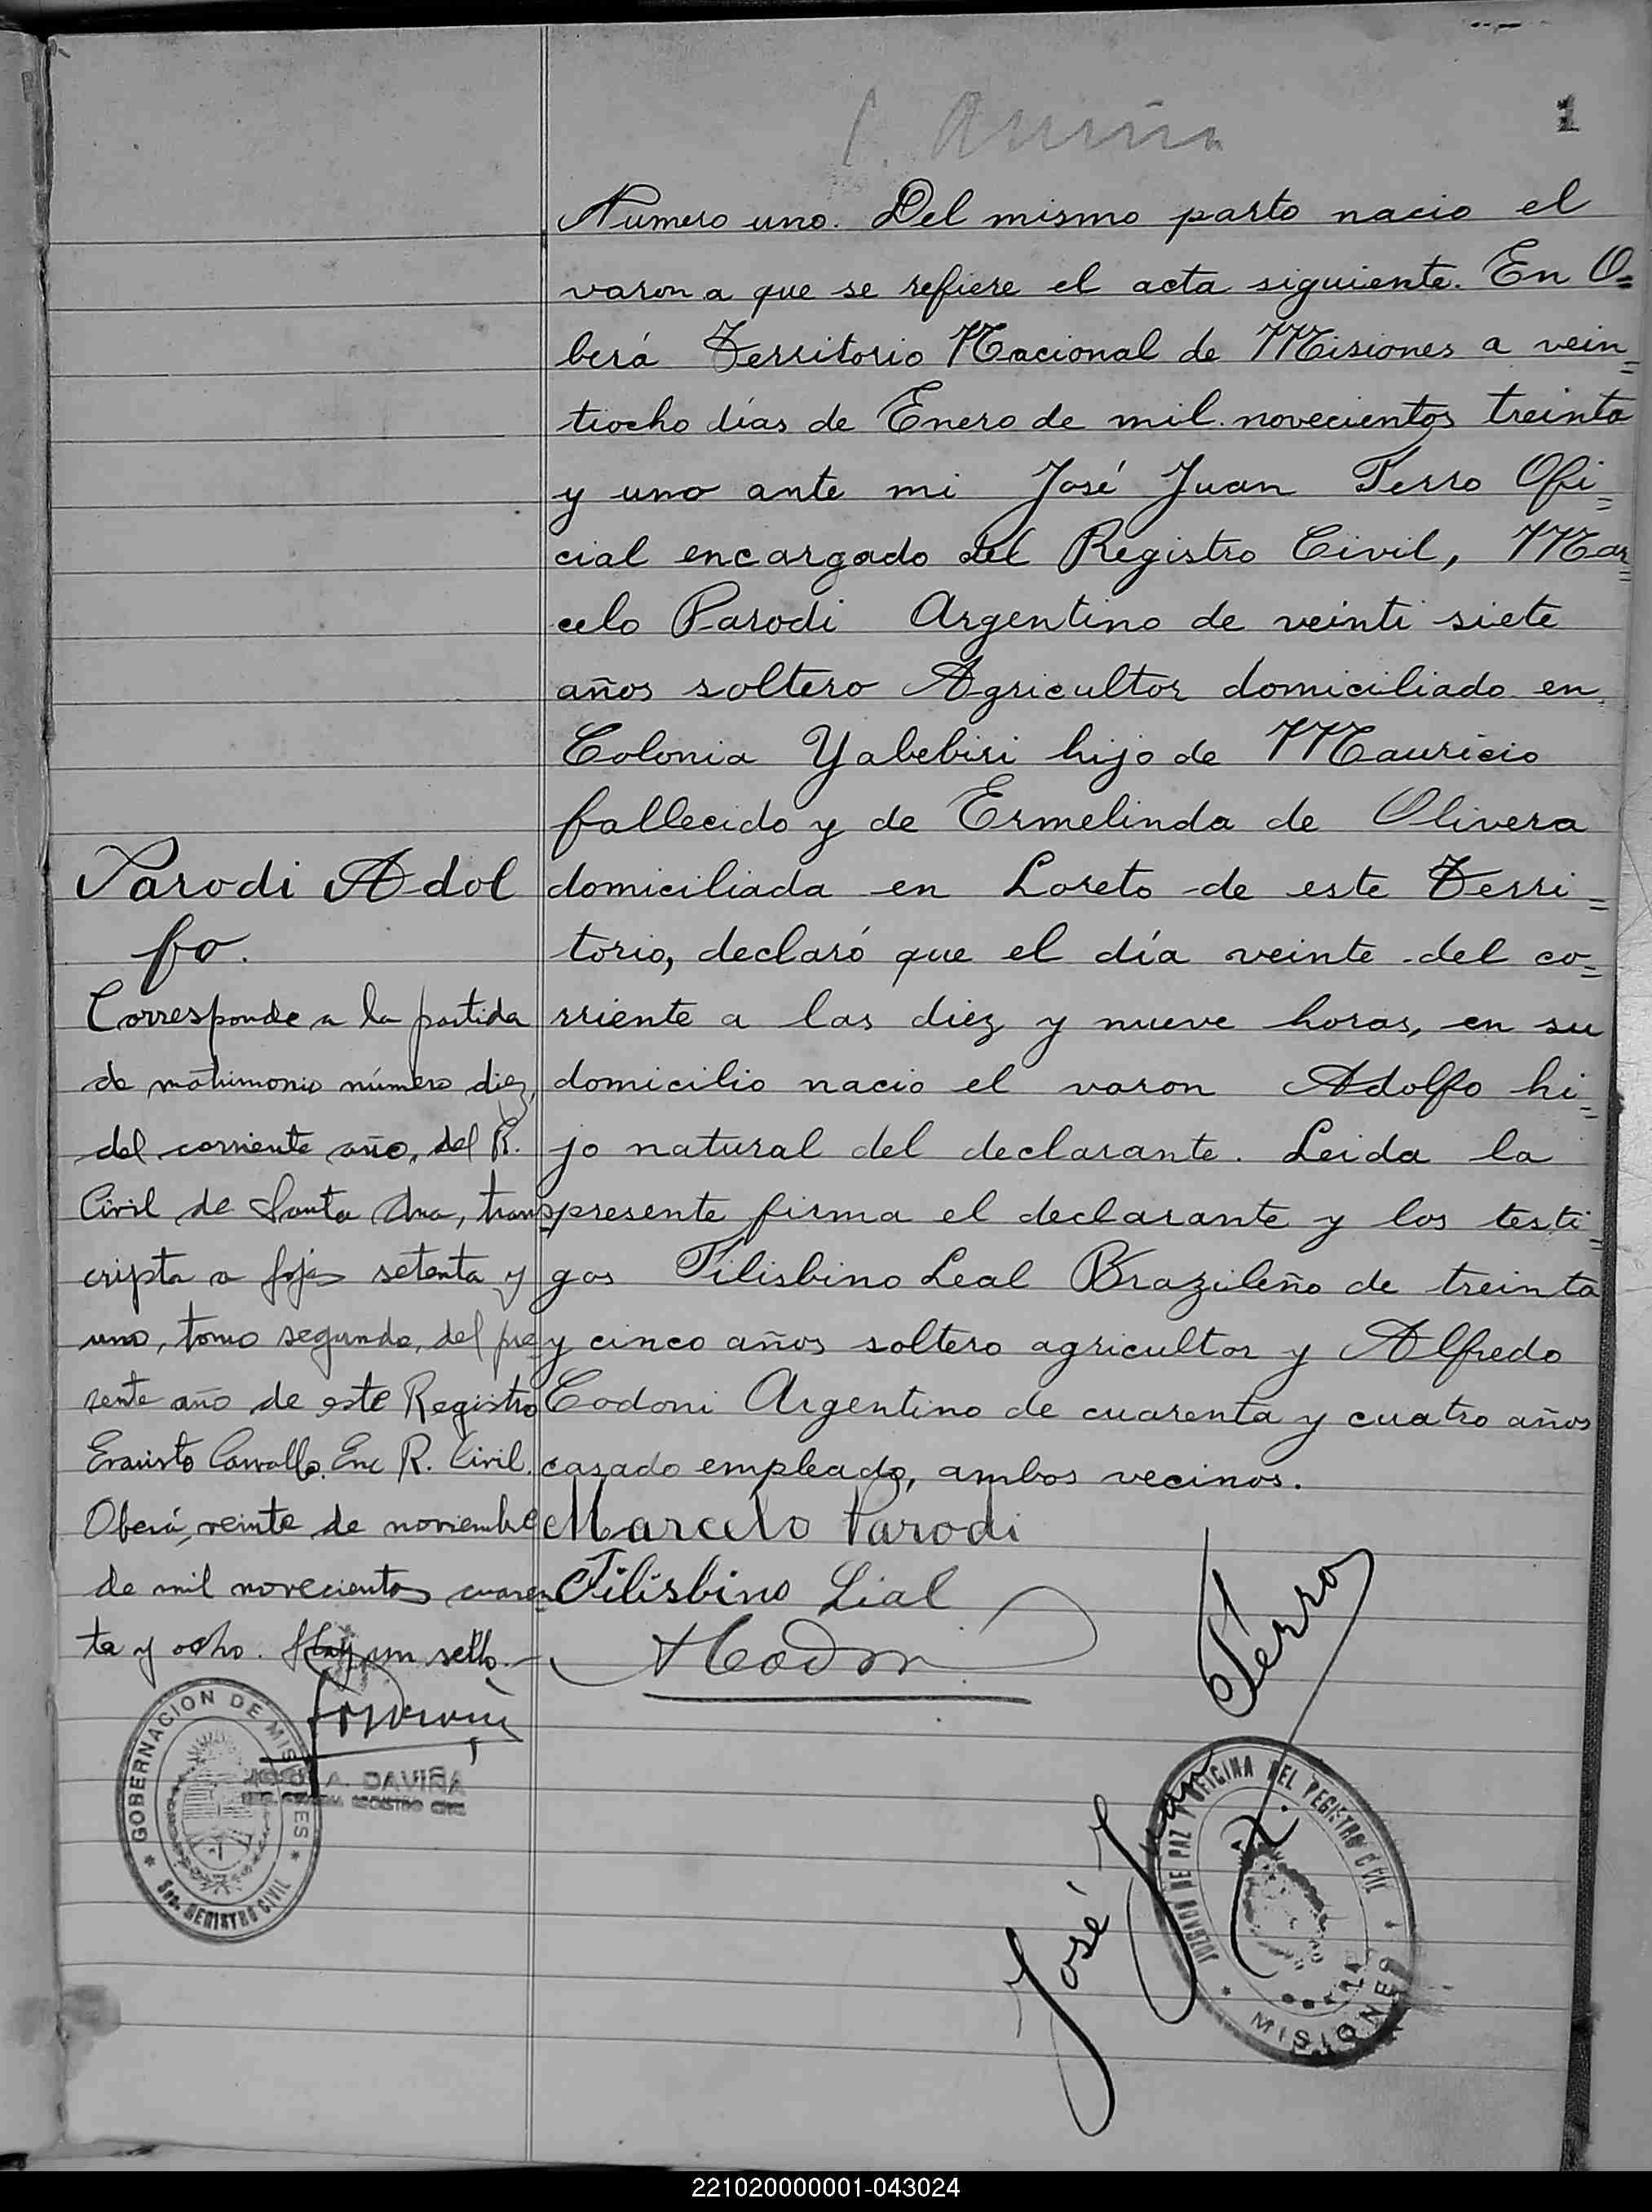 1
Numero uno. Del mismo parto nacio el
varon a que se refiere el acta siguiente. En O=
berá Territorio Nacional de Misiones a vein=
tiocho días de Enero de mil novecientos treinta
y uno ante mi José Juan Ferro Ofi=
cial encargado del Registro Civil, Mar=
celo Parodi Argentino de veinti siete
años soltero Agricultor domiciliado en
Colonia Yabebiri hijo de Mauricio
fallecido y de Ermelinda de Olivera
domiciliada en Loreto de este Terri=
torio, declaró que el día veinte del co=
rriente a las diez y nueve horas, en su
domicilio nacio el varon Adolfo hi=
jo natural del declarante. Leida la
presente firma el declarante y los testi=
gos Filisbino Leal Brazileño de treinta
y cinco años soltero agricultor y Alfredo
Codoni Argentino de cuarenta y cuatro años
casado empleado, ambos vecinos.
Marcelo Parodi
Filisbino Lial
José Juan Ferro
Parodi Adol
fo.
Corresponde a la partida
de matrimonio número diez,
del corriente año, del R.
Civil de Santa Ana, trans
cripta a fojas setenta y
uno, tomo segundo, del pre
sente año de este Registro
Evaristo Carvallo. Enc R. Civil.
Oberá, veinte de noviembre
de mil novecientos cuaren
ta y ocho. Hay un sello.
GOBERNACION DE MISIONES
Sec. REGISTRO CIVIL
A. DAVIÑA
REGISTRO CIVIL
JUZGADO DE PAZ Y OFICINA DEL REGISTRO CIVIL
MISIONES
221020000001-043024